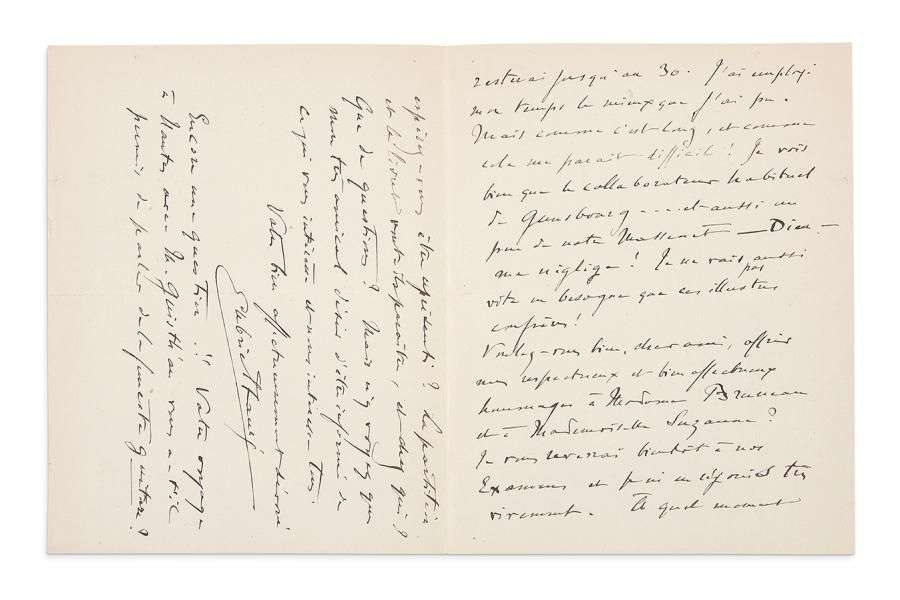 resterai jusqu'au 30. J'ai employé
mon temps le mieux que j'ai pu.
Mais comme c'est long, et comme
cela me paraît difficile ! Je vois
bien que le collaborateur habituel
de Gunsbourg --- et aussi un
peu de notre Massenet — Dieu —
me néglige ! Je ne vais pas aussi
vite en besogne que ces illustres
confrères !
Voulez-vous bien, cher ami, offrir
mes respectueux et bien affectueux
hommages à Madame Bruneau
et à Mademoiselle Suzanne ?
Je vous reverrai bientôt à nos
Examens et je m'en réjouis très
vivement. A quel moment
espérez-vous être représenté ? La partition
et le livret vont-ils paraître, et chez qui ?
Que de questions ! Mais n'y voyez que
mon très amical désir d'être informé de
ce qui vous intéresse et nous intéresse tous
Votre bien affectueusement dévoué
Gabriel Fauré
Encore une question !! Votre voyage
à Nantes avec M. Guist'hau vous a-t-il
permis de parler de la funeste guitare ?